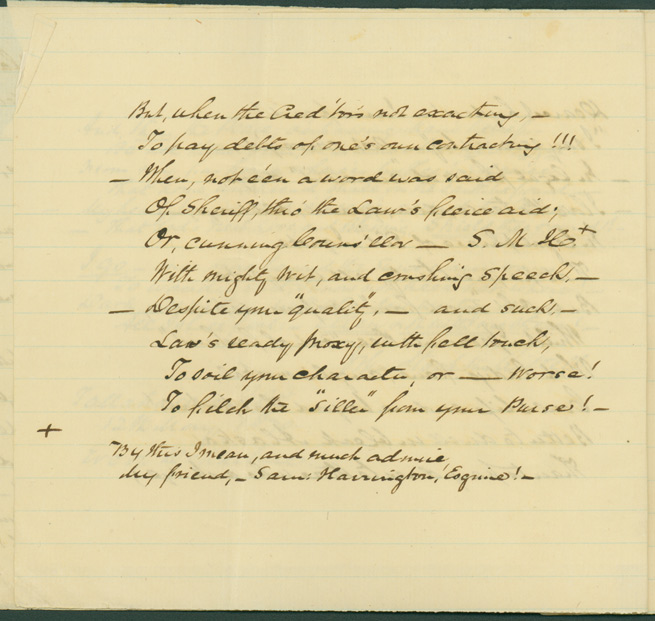 But, when the Cred'tor's not exacting, —
To pay debts of one's own contracting !!!
— When, not e'en a word was said
Of Sheriff, tho' the Law's fierce aid;
Or, cunning Couns'llor — S. M. H. +
With mighty wit, and crushing Speech, —
— Despite your "quality", — and such, —
Law's ready proxy, with fell touch,
To soil your character, or — worse!
To filch the "siller" from your Purse! —
+
By this I mean, and much admire
My friend, — Sam: Harrington, Esquire! —